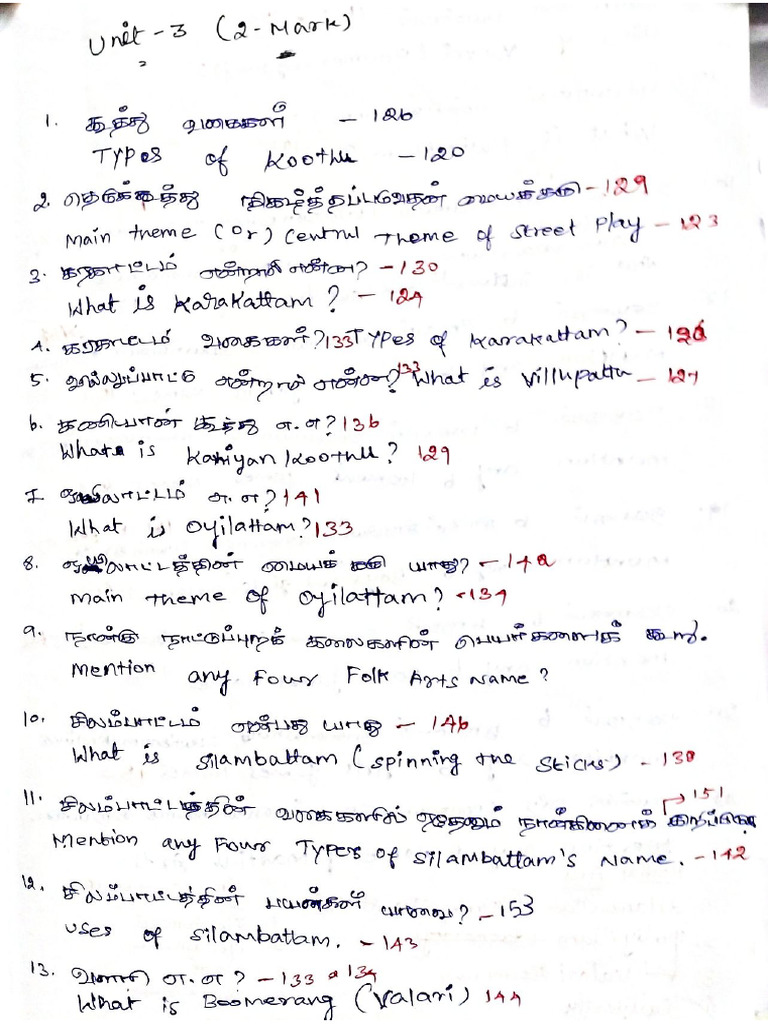 Unit - 3 (2 - Mark)
1. கூத்து வகைகள் - 126
Types of Koothu - 120
2. தெருக்கூத்து நிகழ்த்தப்படுவதன் மையக்கரு - 129
Main theme (or) Central theme of Street Play - 123
3. கரகாட்டம் என்றால் என்ன? - 130
What is Karakattam? - 124
4. கரகாட்டம் வகைகள்? 133 Types of Karakattam? - 126
5. வில்லுப்பாட்டு என்றால் என்ன? 133 What is Villupattu - 127
6. கணியான் கூத்து எ.எ? 136
What is Kaniyan Koothu? 129
7. ஒயிலாட்டம் எ.எ? 141
What is Oyilattam? 133
8. ஒயிலாட்டத்தின் மையக் கரு யாது? - 142
Main theme of Oyilattam? - 134
9. நான்கு நாட்டுப்புறக் கலைகளின் பெயர்களைக் கூறு.
Mention any Four Folk Arts Name?
10. சிலம்பாட்டம் என்பது யாது - 146
What is Silambattam (Spinning the Sticks) - 138
11. சிலம்பாட்டத்தின் வகைகளில் ஏதேனும் நான்கினைக் குறிப்பிடுக 151
Mention any Four Types of Silambattam's Name. - 142
12. சிலம்பாட்டத்தின் பயன்கள் யாவை? - 153
Uses of Silambattam. - 143
13. வளரி எ.எ? - 133 134
What is Boomerang (Valari) 144